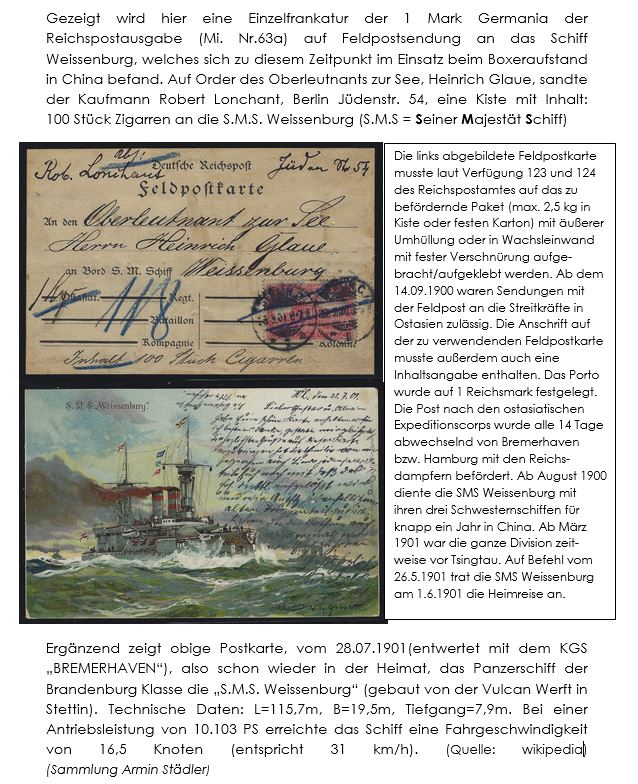 Gezeigt wird hier eine Einzelfrankatur der 1 Mark Germania der
Reichspostausgabe (Mi. Nr.63a) auf Feldpostsendung an das Schiff
Weissenburg, welches sich zu diesem Zeitpunkt im Einsatz beim Boxeraufstand
in China befand. Auf Order des Oberleutnants zur See, Heinrich Glaue, sandte
der Kaufmann Robert Lonchant, Berlin Jüdenstr. 54, eine Kiste mit Inhalt:
100 Stück Zigarren an die S.M.S. Weissenburg (S.M.S = Seiner Majestät Schiff)
Rob. Lonchant Jüden Str 54
Deutsche Reichspost
Feldpostkarte
An den Oberleutnant zur See
Herrn Heinrich Glaue
an Bord S. M. Schiff Weissenburg
Regt.
118
Bataillon
Kompagnie Kolonne
Inhalt 100 Stück Cigarren
Die links abgebildete Feldpostkarte
musste laut Verfügung 123 und 124
des Reichspostamtes auf das zu
befördernde Paket (max. 2,5 kg in
Kiste oder festen Karton) mit äußerer
Umhüllung oder in Wachsleinwand
mit fester Verschnürung aufge-
bracht/aufgeklebt werden. Ab dem
14.09.1900 waren Sendungen mit
der Feldpost an die Streitkräfte in
Ostasien zulässig. Die Anschrift auf
der zu verwendenden Feldpostkarte
musste außerdem auch eine
Inhaltsangabe enthalten. Das Porto
wurde auf 1 Reichsmark festgelegt.
Die Post nach den ostasiatischen
Expeditionscorps wurde alle 14 Tage
abwechselnd von Bremerhaven
bzw. Hamburg mit den Reichs-
dampfern befördert. Ab August 1900
diente die SMS Weissenburg mit
ihren drei Schwesternschiffen für
knapp ein Jahr in China. Ab März
1901 war die ganze Division zeit-
weise vor Tsingtau. Auf Befehl vom
26.5.1901 trat die SMS Weissenburg
am 1.6.1901 die Heimreise an.
S. M. S. „Weissenburg"
Ergänzend zeigt obige Postkarte, vom 28.07.1901(entwertet mit dem KGS
„BREMERHAVEN“), also schon wieder in der Heimat, das Panzerschiff der
Brandenburg Klasse die „S.M.S. Weissenburg“ (gebaut von der Vulcan Werft in
Stettin). Technische Daten: L=115,7m, B=19,5m, Tiefgang=7,9m. Bei einer
Antriebsleistung von 10.103 PS erreichte das Schiff eine Fahrgeschwindigkeit
von 16,5 Knoten (entspricht 31 km/h). (Quelle: wikipedia)
(Sammlung Armin Städler)